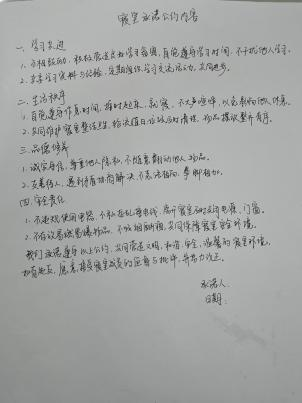 寝室承诺公约内容
一、学习共进
1. 互相鼓励，积极营造良好学习氛围，自觉遵守学习时间，不干扰他人学习。
2. 共享学习资料与经验，定期组织学习交流活动，共同进步。
二、生活秩序
1. 自觉遵守作息时间，按时起床、就寝，不大声喧哗，以免影响他人休息。
2. 共同维护寝室整洁卫生，轮流值日，垃圾及时清理，物品摆放整齐有序。
三、品德修养
1. 诚实守信，尊重他人隐私，不随意翻动他人物品。
2. 友善待人，遇到矛盾协商解决，不恶语相向、拳脚相加。
四、安全责任
1. 不违规使用电器，不私拉乱接电线，离开寝室时关闭电源、门窗。
2. 不存放易燃易爆物品，不吸烟酗酒，共同保障寝室安全环境。
我们承诺遵守以上公约，共同营造文明、和谐、安全、温馨的寝室环境，
如有违反，愿意接受寝室成员的监督与批评，并努力改正。
承诺人：
日期：